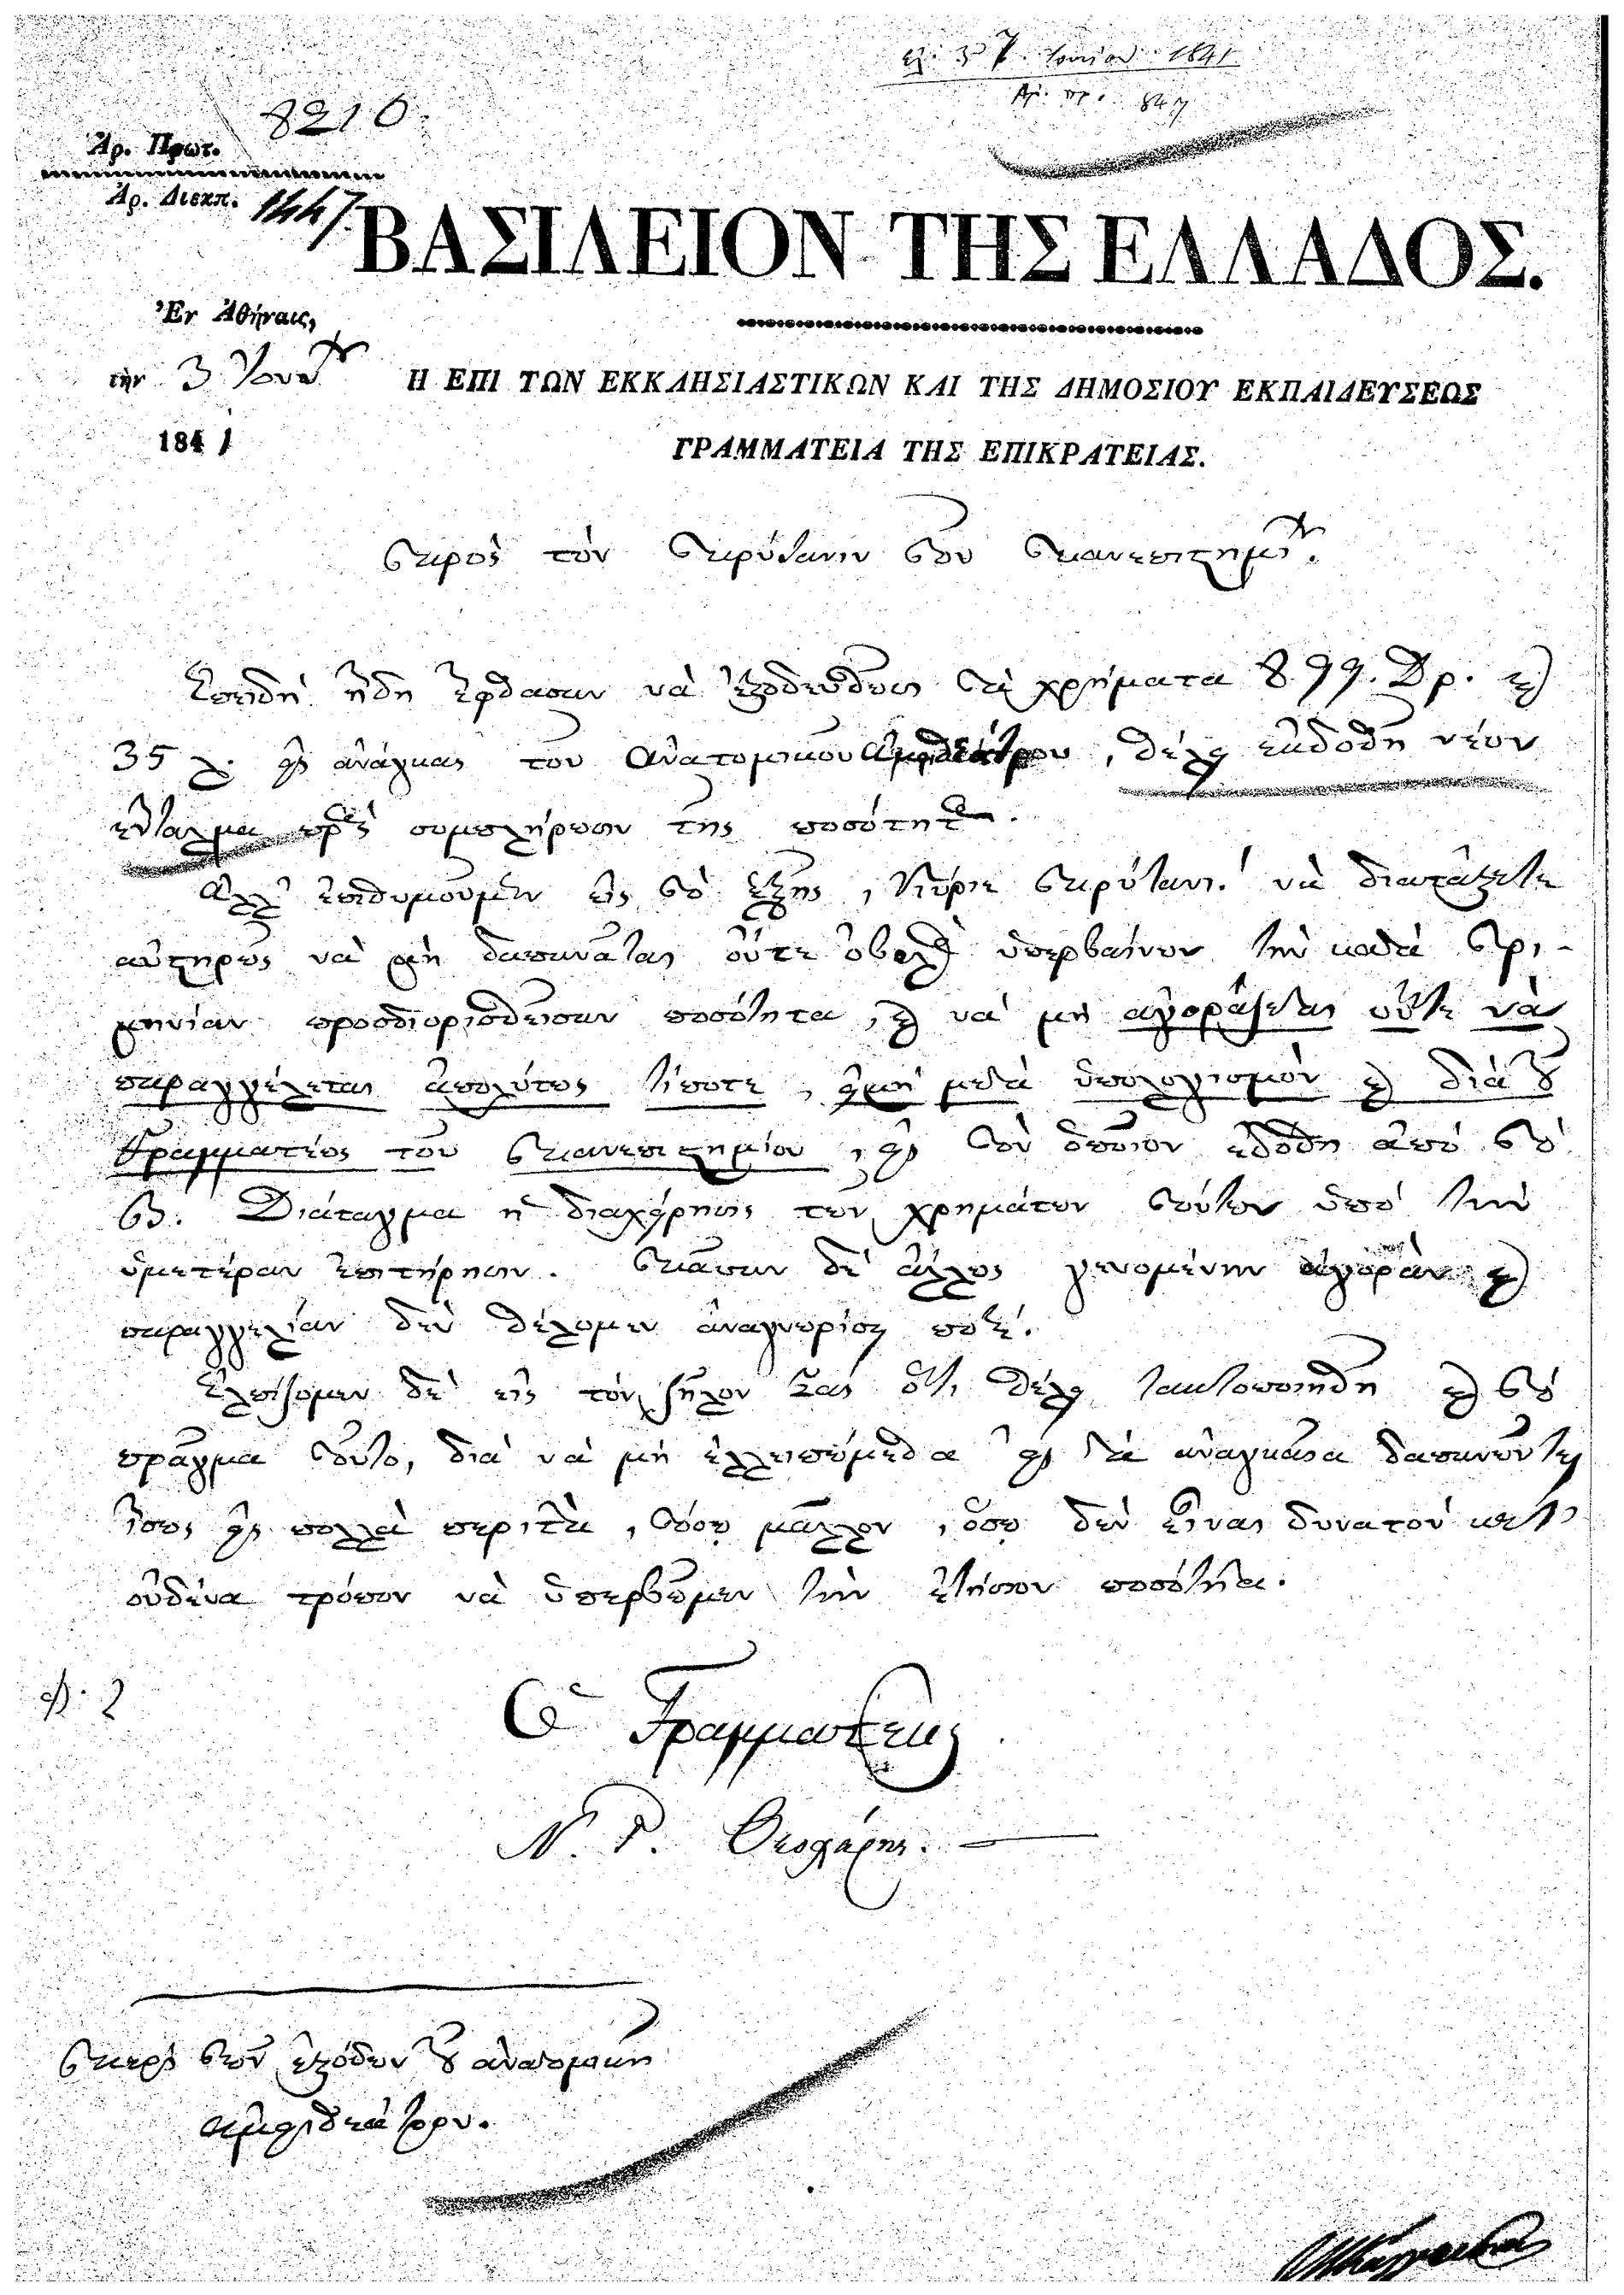 ἐλ. 3 Ἰουνίου 1841
Ἀρ. πρ. 847
8210
Ἀρ. Πρωτ.
Ἀρ. Διεκπ. 1447
ΒΑΣΙΛΕΙΟΝ ΤΗΣ ΕΛΛΑΔΟΣ.
Ἐν Ἀθήναις,
τὴν 3 Ἰουν
1841
Η ΕΠΙ ΤΩΝ ΕΚΚΛΗΣΙΑΣΤΙΚΩΝ ΚΑΙ ΤΗΣ ΔΗΜΟΣΙΟΥ ΕΚΠΑΙΔΕΥΣΕΩΣ
ΓΡΑΜΜΑΤΕΙΑ ΤΗΣ ΕΠΙΚΡΑΤΕΙΑΣ.
Πρὸς τὸν Πρύτανιν τοῦ Πανεπιστημίου.
Ἐπειδὴ ἤδη ἔφθασαν νὰ ἐξοδευθῶσι τὰ χρήματα 899. Δρ. καὶ
35 λ. εἰς ἀνάγκας τοῦ Ἀνατομικοῦ Ἀμφιθεάτρου, θέλει ἐκδοθῆ νέον
ἔνταλμα πρὸς συμπλήρωσιν τῆς ποσότητος.
Ἀλλ' ἐπιθυμοῦμεν εἰς τὸ ἑξῆς, Κύριε Πρύτανι! νὰ διατάξετε
αὐστηρῶς νὰ μὴ δαπανᾶται οὔτε ὀβολὸς ὑπερβαίνων τὴν κατὰ τρι-
μηνίαν προσδιορισθεῖσαν ποσότητα, καὶ νὰ μὴ ἀγοράζεται οὔτε νὰ
παραγγέλεται ἀπολύτως τίποτε, εἰμὴ μετὰ ὑπολογισμὸν καὶ διὰ τοῦ
Γραμματέως τοῦ Πανεπιστημίου, εἰς τὸν ὁποῖον ἐδόθη ἀπὸ τὸ
Β. Διάταγμα ἡ διαχείρησις τῶν χρημάτων τούτων ὑπὸ τὴν
ὑμετέραν ἐπιτήρησιν. Πᾶσαν δὲ ἄλλως γενομένην ἀγορὰν καὶ
παραγγελίαν δὲν θέλομεν ἀναγνωρίσει ποτέ.
Ἐλπίζομεν δὲ εἰς τὸν ζῆλόν σας ὅτι θέλει τακτοποιηθῆ καὶ τὸ
πρᾶγμα τοῦτο, διὰ νὰ μὴ ἐλλειπώμεθα εἰς τὰ ἀναγκαῖα δαπανῶντες
ἴσως εἰς πολλὰ περιττὰ, τόσῳ μᾶλλον, ὅσῳ δὲν εἶναι δυνατὸν κατ'
οὐδένα τρόπον νὰ ὑπερβῶμεν τὴν ἐτήσιον ποσότητα.
Ὁ Γραμματεὺς
Ν. Γ. Θεοχάρης.
Περὶ τῶν ἐξόδων τοῦ ἀνατομικοῦ
ἀμφιθεάτρου.